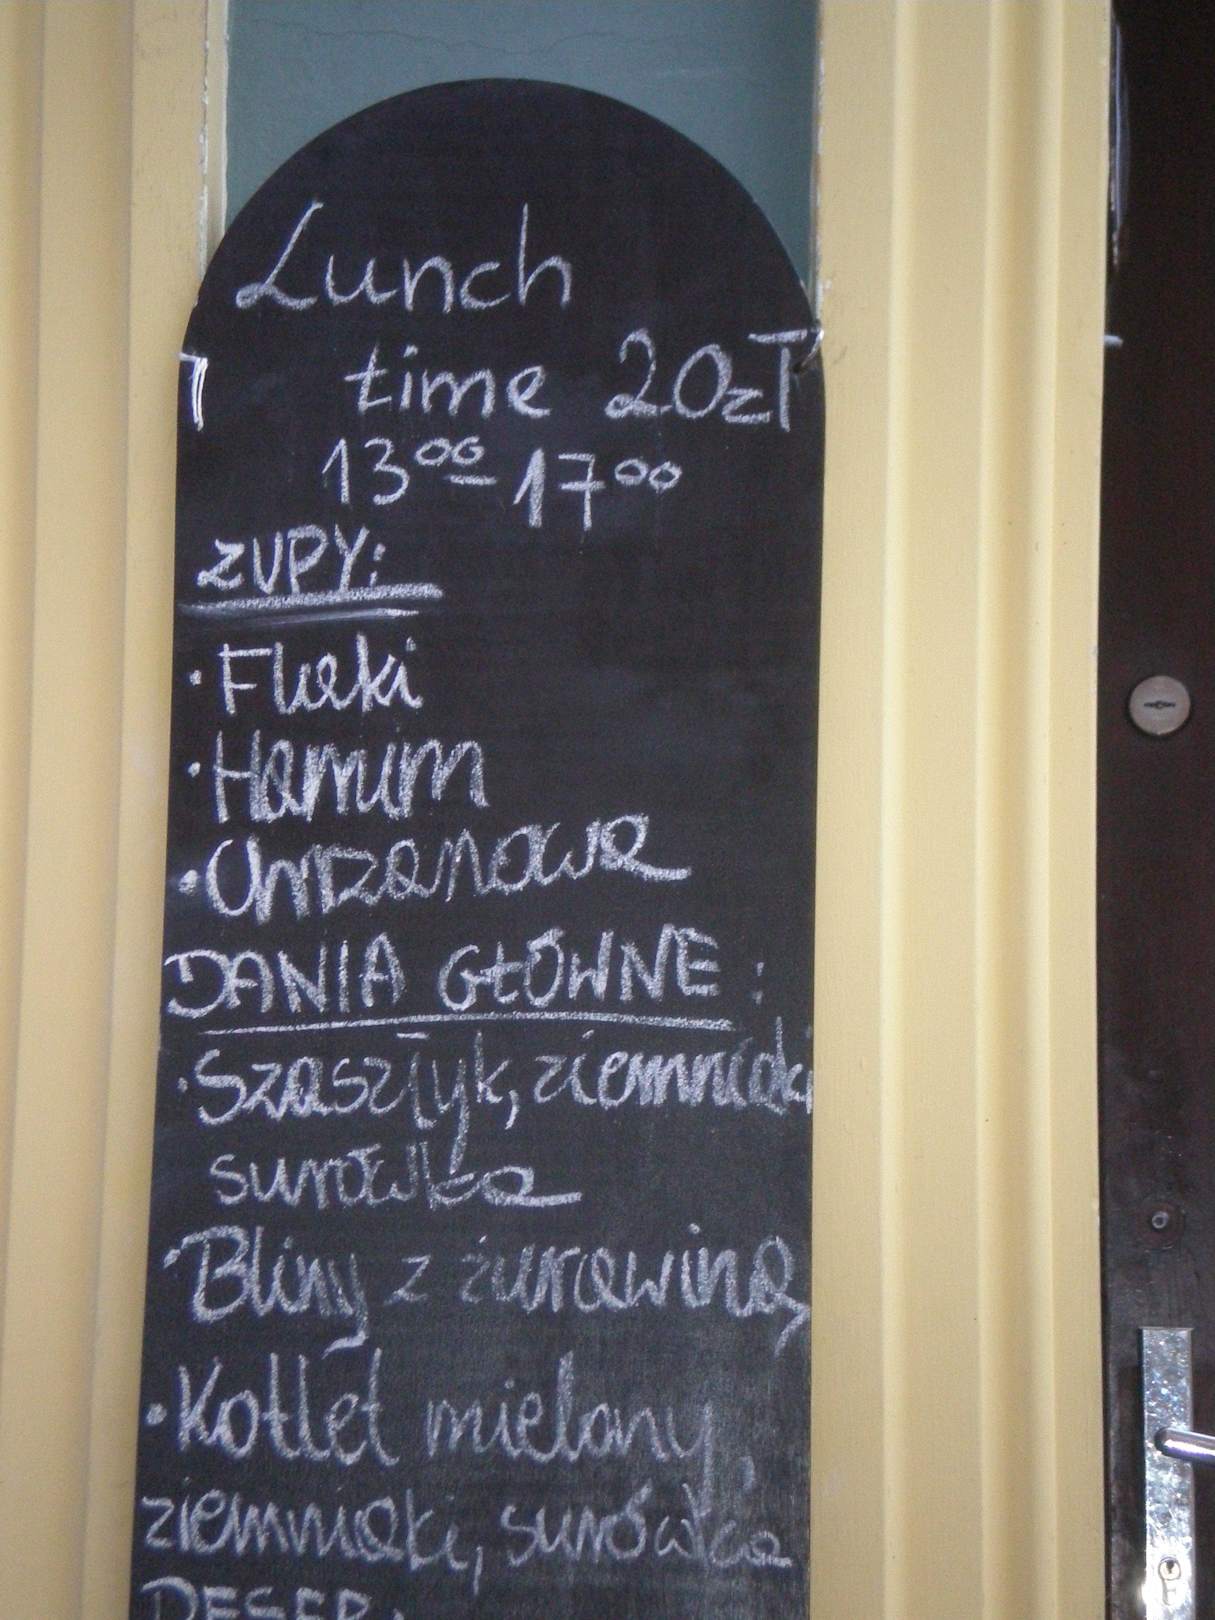 Lunch
time 20zł
13⁰⁰-17⁰⁰
ZUPY:
·Flaki
·Hamim
·Chrzanowa
DANIA GŁÓWNE:
·Szaszłyk, ziemniaki
surówka
·Bliny z żurawiną
·Kotlet mielony,
ziemniaki, surówka
DESER: